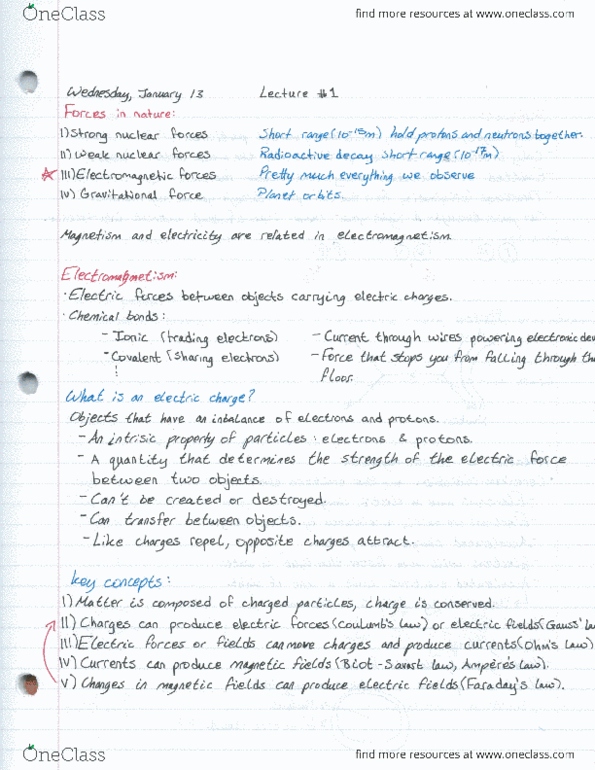 OneClass find more resources at www.oneclass.com
Wednesday, January 13 Lecture #1
Forces in nature:
I) Strong nuclear forces Short range (10⁻¹⁵m) hold protons and neutrons together.
II) Weak nuclear forces Radioactive decay short range (10⁻¹⁷m)
III) Electromagnetic forces Pretty much everything we observe
IV) Gravitational force Planet orbits.
Magnetism and electricity are related in electromagnetism.
Electromagnetism:
· Electric forces between objects carrying electric charges.
· Chemical bonds:
- Ionic (trading electrons) - Current through wires powering electronic dev
- Covalent (sharing electrons) - Force that stops you from falling through th
floor.
What is an electric charge?
Objects that have an inbalance of electrons and protons.
- An intrisic property of particles: electrons & protons.
- A quantity that determines the strength of the electric force
between two objects.
- Can't be created or destroyed.
- Can transfer between objects.
- Like charges repel, opposite charges attract.
Key concepts:
I) Matter is composed of charged particles, charge is conserved.
II) Charges can produce electric forces (Coulumb's law) or electric fields (Gauss' la
III) Electric forces or fields can move charges and produce currents (Ohm's law)
IV) Currents can produce magnetic fields (Biot-Savart law, Ampère's law).
V) Changes in magnetic fields can produce electric fields (Faraday's law).
OneClass find more resources at www.oneclass.com